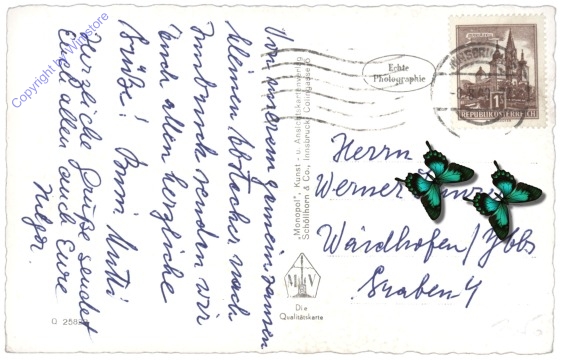 Von unserem gemeinsamen
kleinen Abstecher nach
Innsbruck senden wir
Euch allen herzliche
Grüße! Mutti
Herzliche Grüße sendet
Euch allen auch Eure
Helga.
"Monopol", Kunst- u. Ansichtskartenverlag
Schöllhorn & Co., Innsbruck, Colingasse
Echte
Photographie
1
REPUBLIK ÖSTERREICH
Herrn
Werner
Waidhofen/Ybbs
Graben 4
M V
Die
Qualitätskarte
Copyright by Winstore